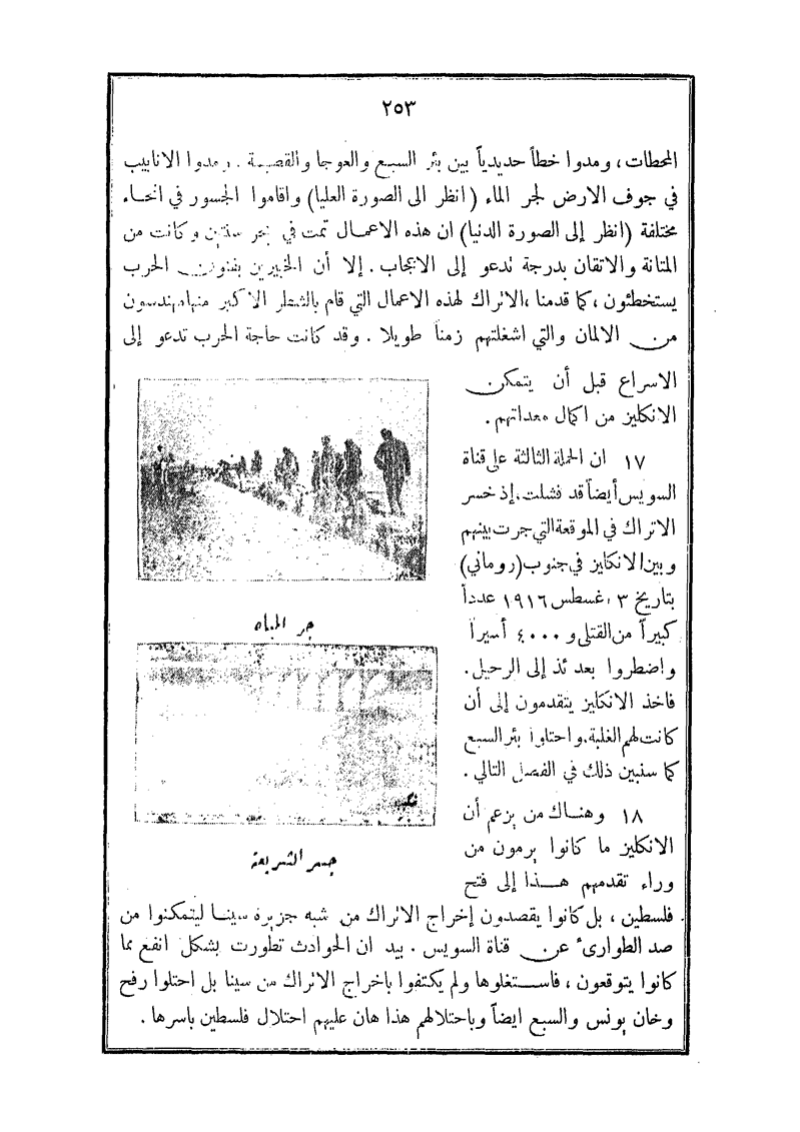 ٢٥٣
المحطات، ومدوا خطاً حديدياً بين بئر السبع والعوجا والقصيمة. ومدوا الانابيب
في جوف الارض لجر الماء (انظر الى الصورة العليا) واقاموا الجسور في انحاء
مختلفة (انظر إلى الصورة الدنيا) ان هذه الاعمال تمت في بحر سنتين وكانت من
المتانة والاتقان بدرجة تدعو إلى الاعجاب. إلا أن الخبيرين بفنون الحرب
يستخطئون، كما قدمنا، الاتراك لهذه الاعمال التي قام بالشطر الاكبر منها مهندسون
من الالمان والتي اشغلتهم زمناً طويلا. وقد كانت حاجة الحرب تدعو إلى
الاسراع قبل أن يتمكن
الانكليز من اكمال معداتهم.
١٧ ان الحملة الثالثة على قناة
السويس أيضاً قد فشلت، إذ خسر
الاتراك في الموقعة التي جرت بينهم
وبين الانكليز في جنوب (روماني)
بتاريخ ٣ اغسطس ١٩١٦ عدداً
كبيراً من القتلى و ٤٠٠٠ أسيراً
واضطروا بعدئذ إلى الرحيل.
فاخذ الانكليز يتقدمون إلى أن
كانت لهم الغلبة، واحتلوا بئر السبع
كما سنبين ذلك في الفصل التالي.
جر المياه
جسر الشريعة
١٨ وهناك من يزعم أن
الانكليز ما كانوا يرمون من
وراء تقدمهم هذا إلى فتح
فلسطين، بل كانوا يقصدون إخراج الاتراك من شبه جزيرة سينا ليتمكنوا من
صد الطوارئ عن قناة السويس. بيد ان الحوادث تطورت بشكل انفع مما
كانوا يتوقعون، فاستغلوها ولم يكتفوا باخراج الاتراك من سينا بل احتلوا رفح
وخان يونس والسبع ايضاً وباحتلالهم هذا هان عليهم احتلال فلسطين باسرها.